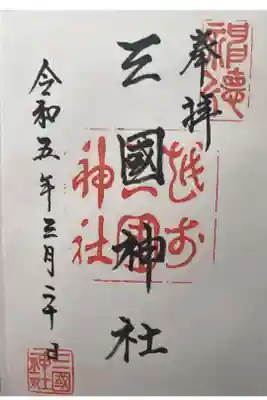 奉拝
越前
三國神社
三國
神社
令和五年三月二十日
三國
神社